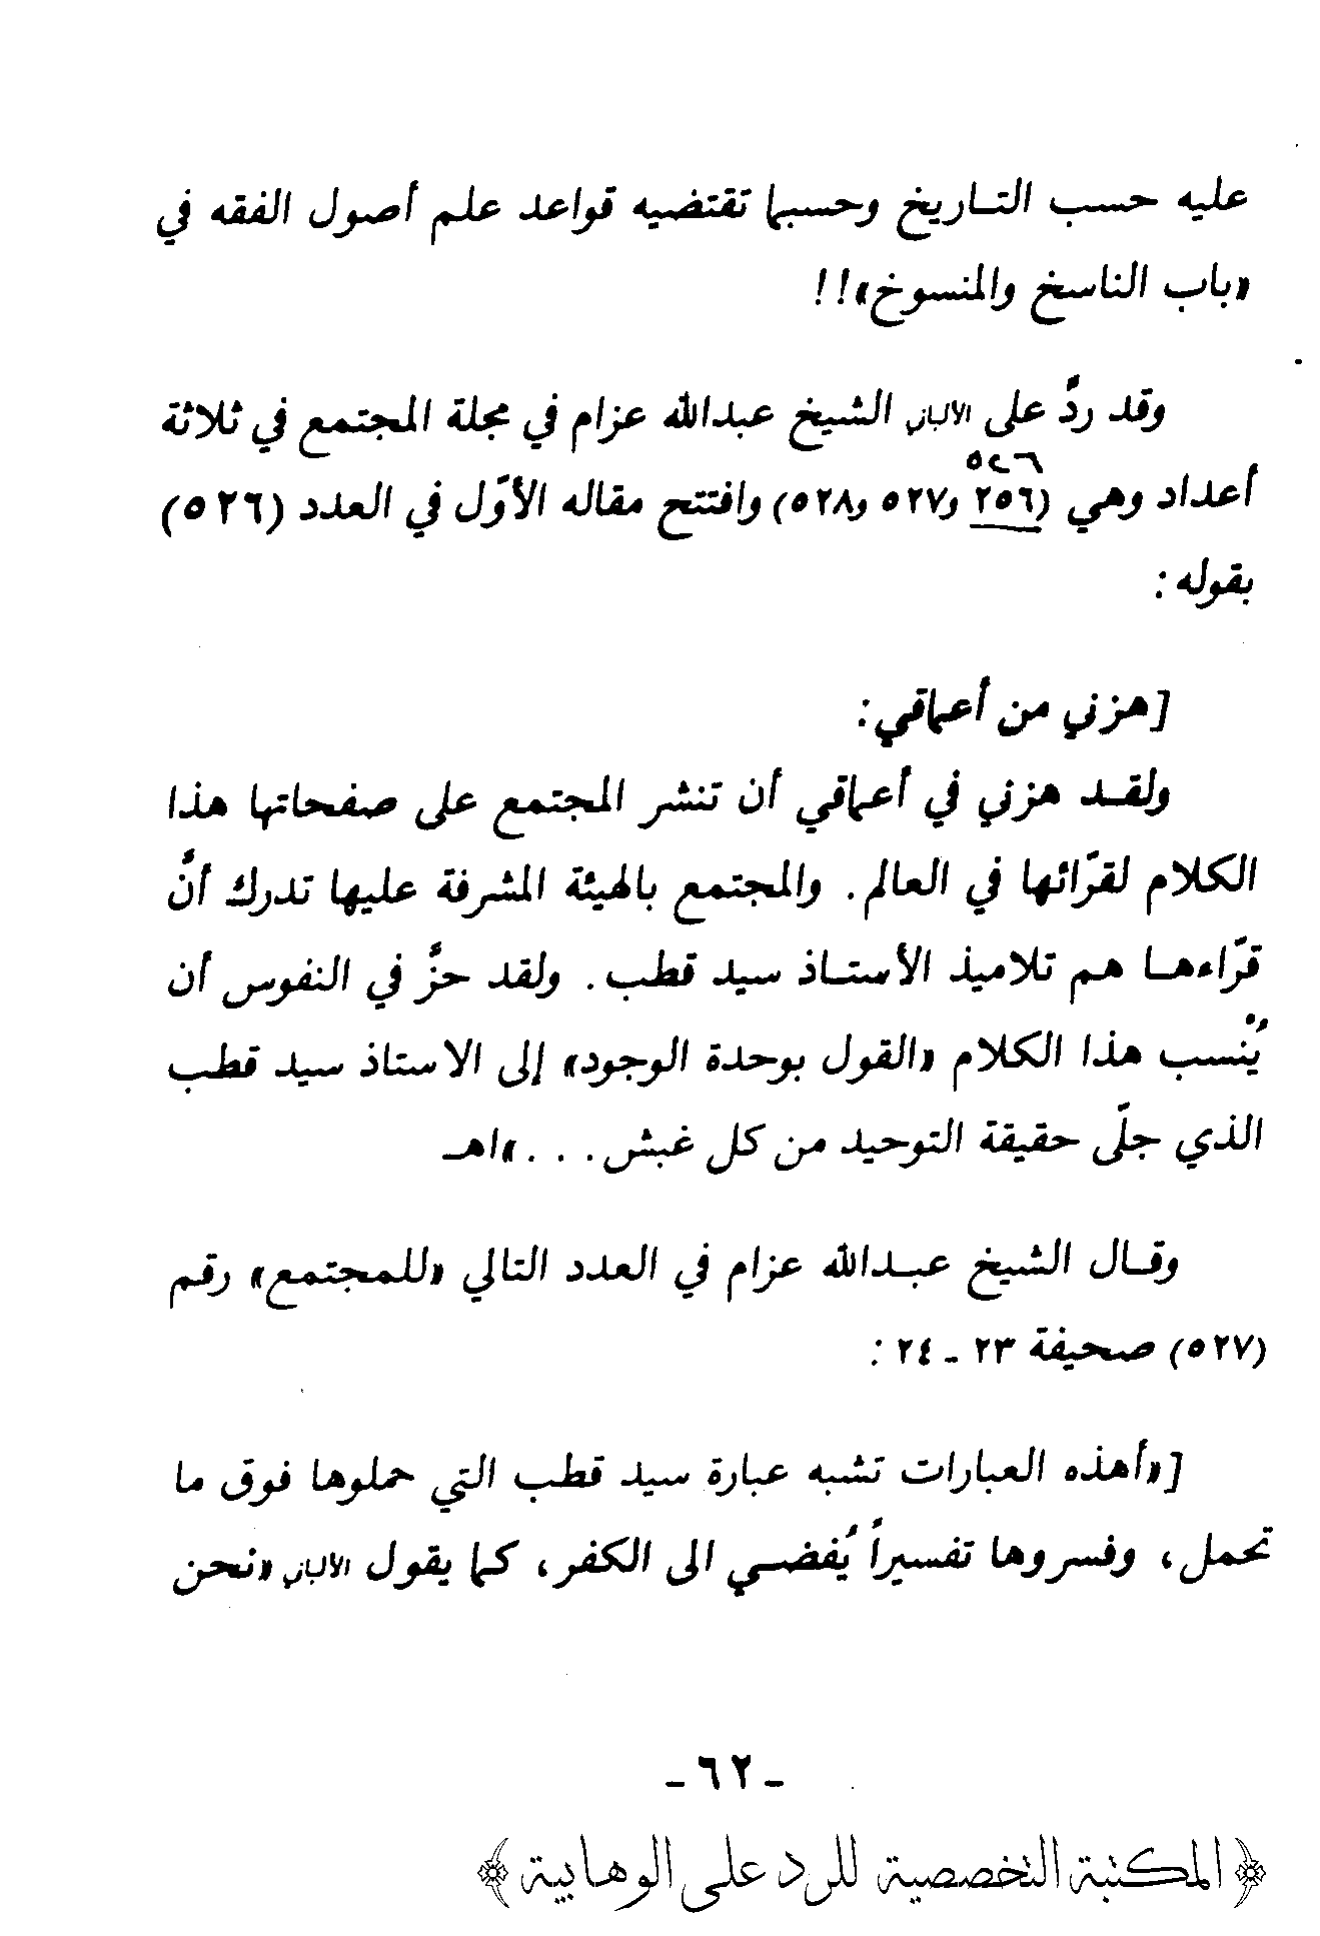 عليه حسب التاريخ وحسبما تقتضيه قواعد علم أصول الفقه في
«باب الناسخ والمنسوخ»!!
وقد ردَّ على الألباني الشيخ عبدالله عزام في مجلة المجتمع في ثلاثة
٥٢٦
أعداد وهي (٢٥٦ و٥٢٧ و٥٢٨) وافتتح مقاله الأوّل في العدد (٥٢٦)
بقوله :
[هزني من أعماقي :
ولقد هزني في أعماقي أن تنشر المجتمع على صفحاتها هذا
الكلام لقرّائها في العالم . والمجتمع بالهيئة المشرفة عليها تدرك أنَّ
قرّاءها هم تلاميذ الأستاذ سيد قطب . ولقد حزَّ في النفوس أن
يُنْسب هذا الكلام «القول بوحدة الوجود» إلى الاستاذ سيد قطب
الذي جلّى حقيقة التوحيد من كل غبش . . . »اهـ
وقال الشيخ عبدالله عزام في العدد التالي «للمجتمع» رقم
(٥٢٧) صحيفة ٢٣ - ٢٤ :
[«أهذه العبارات تشبه عبارة سيد قطب التي حملوها فوق ما
تحمل، وفسروها تفسيراً يُفضي الى الكفر، كما يقول الألباني «نحن
- ٦٢ -
﴿المكتبة التخصصية للرد على الوهابية﴾